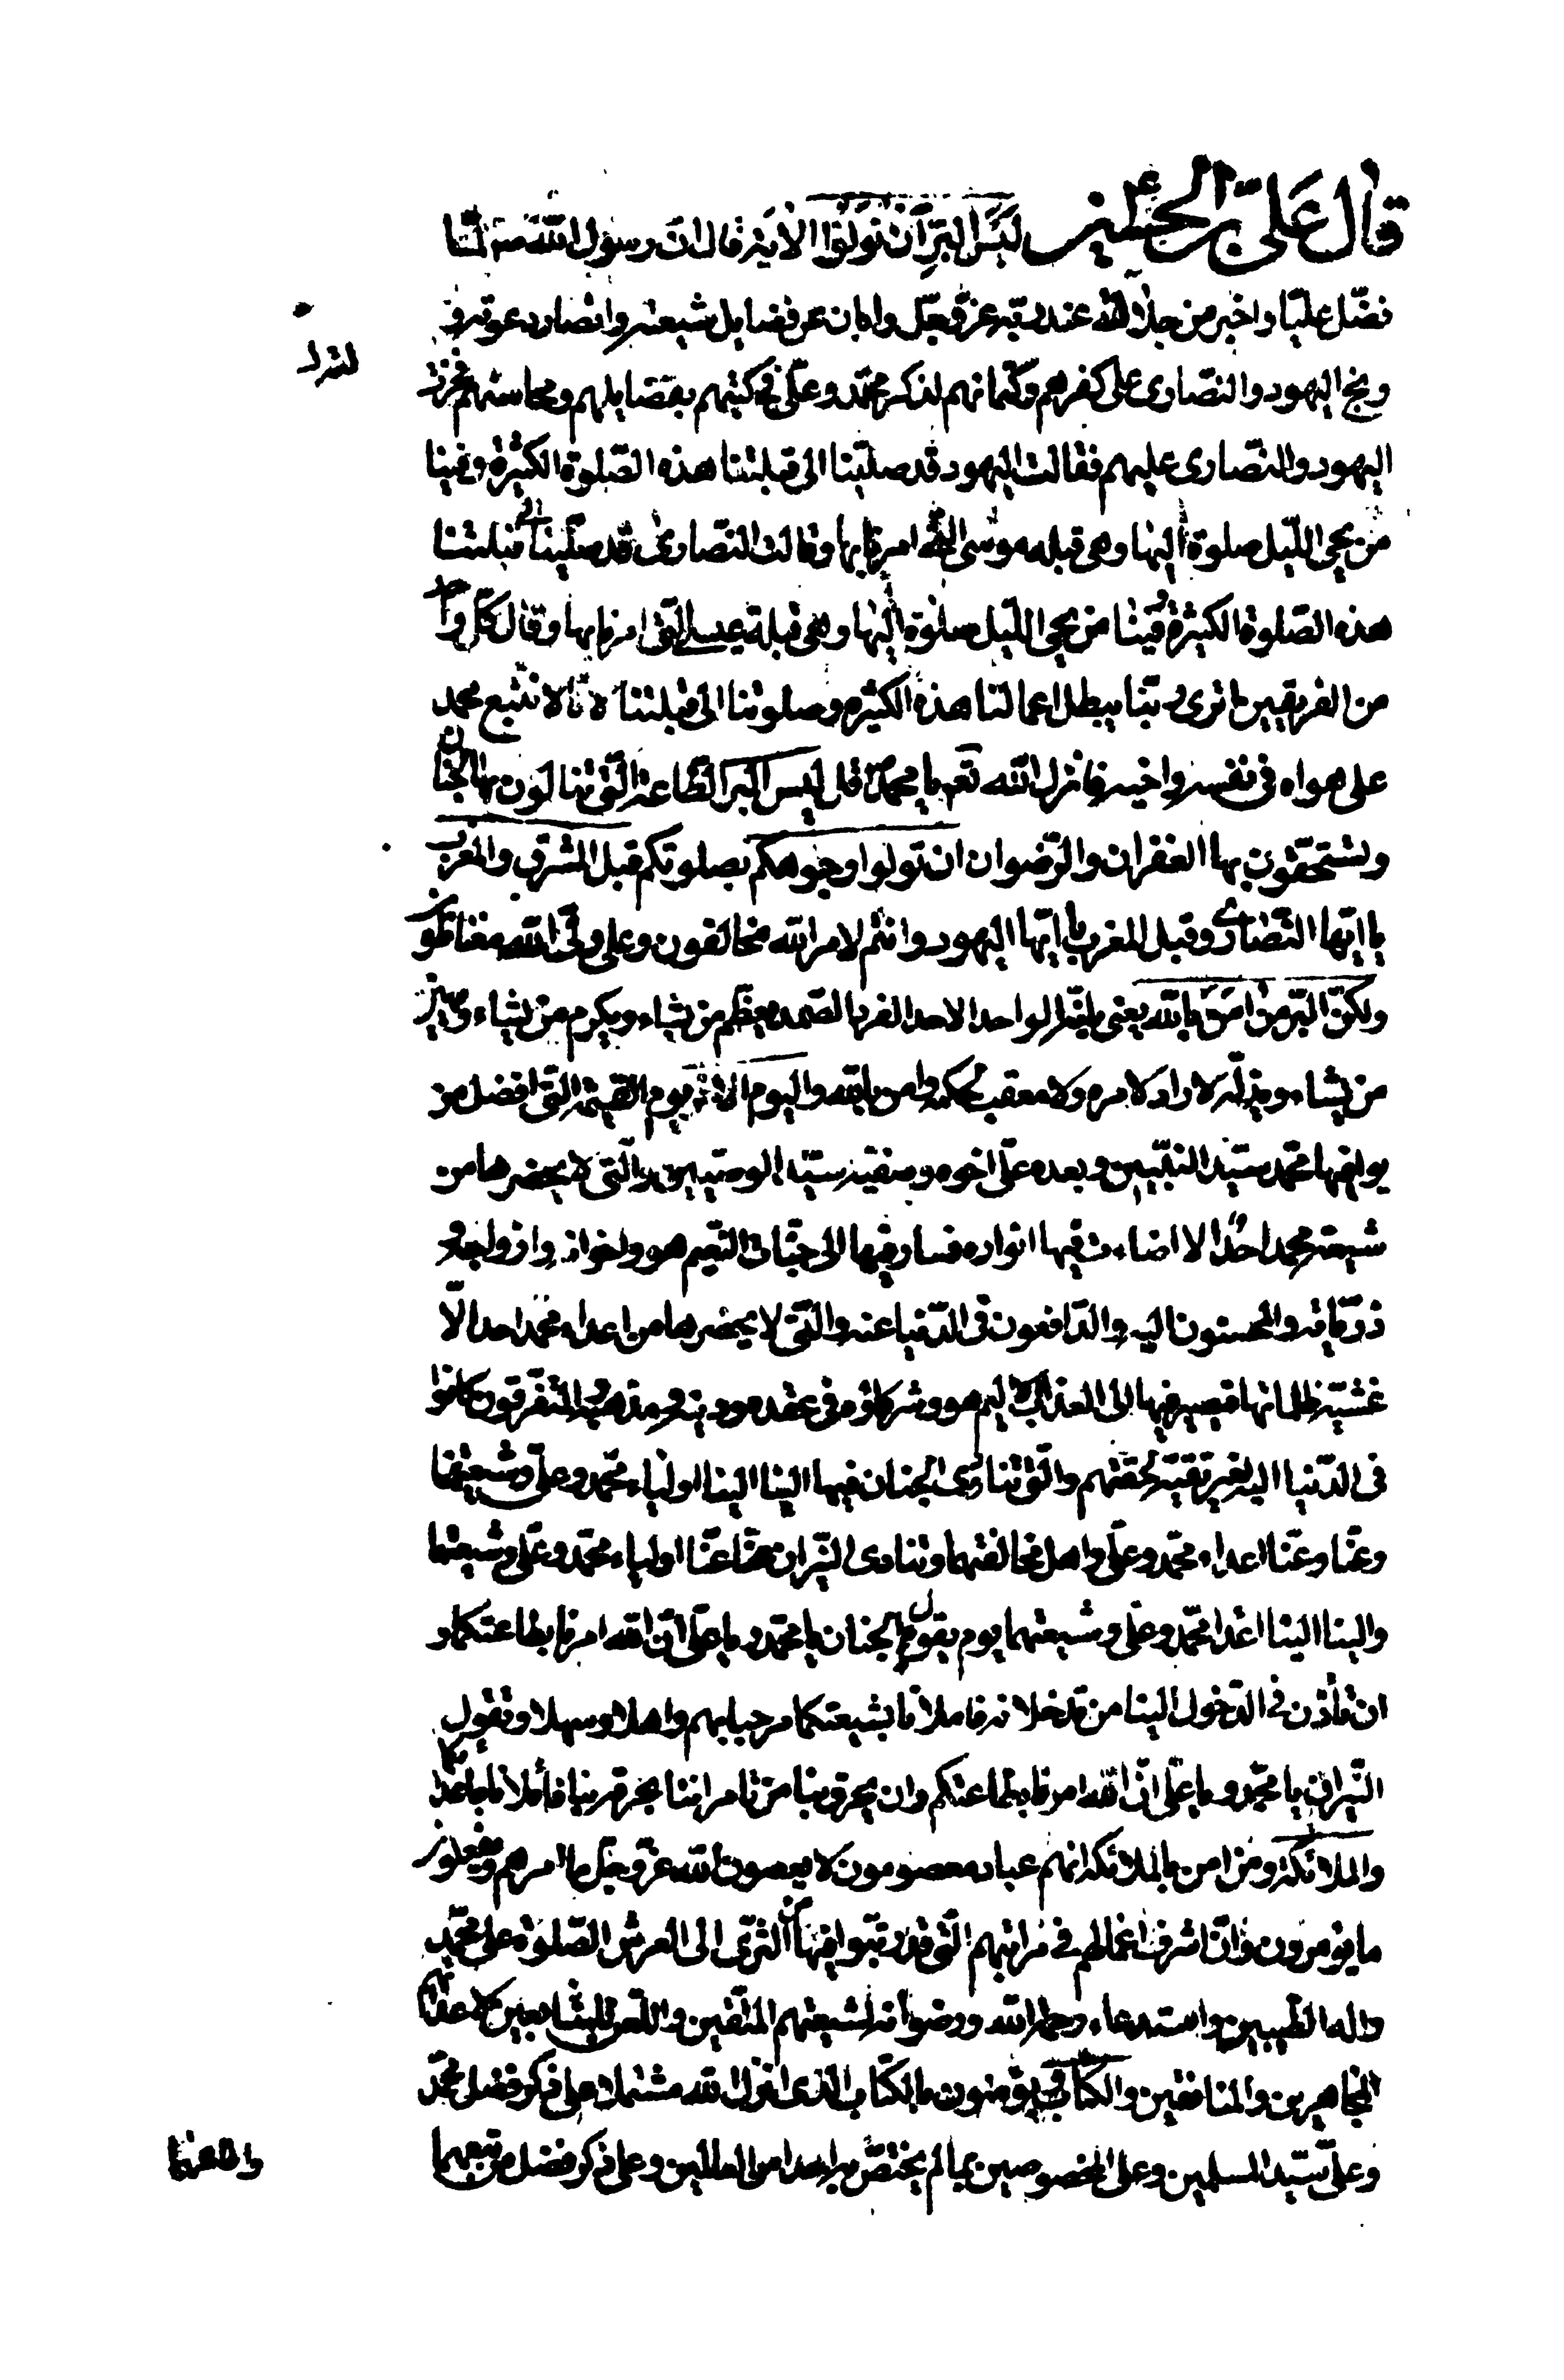 قال علىّ بن الحسين ليس البرّ ان تولّوا الآية قال ان رسول الله ص لمّا
فضّل عليّا واخبر عن جلالته عند ربّه عزّ وجلّ وابان عن فضايل شيعته وانصار دعوته و
وبخ اليهود والنصارى على كفرهم وكتمانهم لذكر محمّد وعلى فى كتبهم بفضايلهم ومحاسنهم فخرت
اليهود والنصارى عليهم فقالت اليهود قد صلّينا الى قبلتنا هذه الصّلوة الكثيرة وفينا
من يحيى اللّيل صلوة اليها وهى قبلة موسى الّتى امرنا بها وقالت النّصارى قد صلّينا الى قبلتنا
هذه الصّلوة الكثيرة وفينا من يحيى اللّيل صلوة اليها وهى قبلة عيسى الّتى امرنا بها وقال كلّ واحد
من الفريقين اترى ربّنا يبطل اعمالنا هذه الكثيرة وصلوتنا الى قبلتنا لانّا لا نتّبع محمد
على هواه فى نفسه واخيه فانزل الله تعه يا محمّد ص قل ليس البرّ الطّاعة الّتى تنالون بها الجنان
وتستحقّون بها الغفران والرّضوان ان تولوا وجوهكم بصلوتكم قبل المشرق والمغرب
يا ايّها النّصارى وقبل المغرب يا ايّها اليهود وانتم لامر الله مخالفون وعلى ولىّ الله مغتاظون
ولكنّ البرّ من امن بالله يعنى بانّه الواحد الاحد الفرد الصّمد يعظّم من يشاء ويكرم من يشاء ويهين
من يشاء ويذلّه لا رادّ لامره ولا معقب لحكمه وامن بالله واليوم الاخر يوم القيمة الّتى افضل من
يوافيها محمّد سيّد النّبيّين وبعده علىّ اخوه وصفيّه سيّد الوصيّين والّتى لا يحضرها من
شيعة محمد احدا الا اضاءت فيها انواره فسار فيها الى جنّات النّعيم هو واخوانه وازواجه و
ذرّياته والمحسنون اليه والدّافعون فى الدّنيا عنه والّتى لا يحضرها من اعداء محمّد احد الّا
غشيته ظلماتها فيسير فيها الى العذاب الاليم هو وشركاؤه فى عقده ودينه ومذهبه والمتقرّبون كانوا
فى الدّنيا اليه لغير تقيّة لحقتهم والّتى تنادى الجنان فيها الينا الينا اولياء محمّد وعلى وشيعتهما
وعنّا وعنّا اعداء محمّد وعلى واهل مخالفتهما وتنادى النّيران عنّا عنّا اولياء محمّد وعلى وشيعتهما
والينا الينا اعداء محمّد وعلى وشيعتهما يوم يقول الجنان يا محمّد ويا على انّ الله امرنا بطاعتكما و
ان تأذن فى الدّخول الينا من تدخلانه فاملانا بشيعتكما مرحبا بهم واهلا وسهلا وتقول
النّيران يا محمّد ويا على انّ الله امرنا بطاعتكم وان يحرق بنا من تأمراننا بحرقه بنا فأملانا باعدائكما
والملائكة ومن امن بالملائكة انهم عباد معصومون لا يعصون الله عزّ وجلّ ما امرهم ويفعلون
ما يؤمرون وانّ اشرف اعمالهم فى مراتبهم الّتى قد رتّبوا فيها من الثّرى الى العرش الصّلوة على محمّد
واله الطّيبين واستدعاء رحمة الله ورضوانه لشيعتهم المتّقين واللّعن للمتابعين لاعدائهم
المجاهرين والمنافقين والكتاب ويؤمنون بالكتاب الّذى انزل الله مشتملا على ذكر فضل محمّد
وعلىّ سيّد المسلمين وعلى المخصوصين بما لم يختصّ به احدا من العالمين وعلى ذكر فضل من تبعهما
واطاعهما